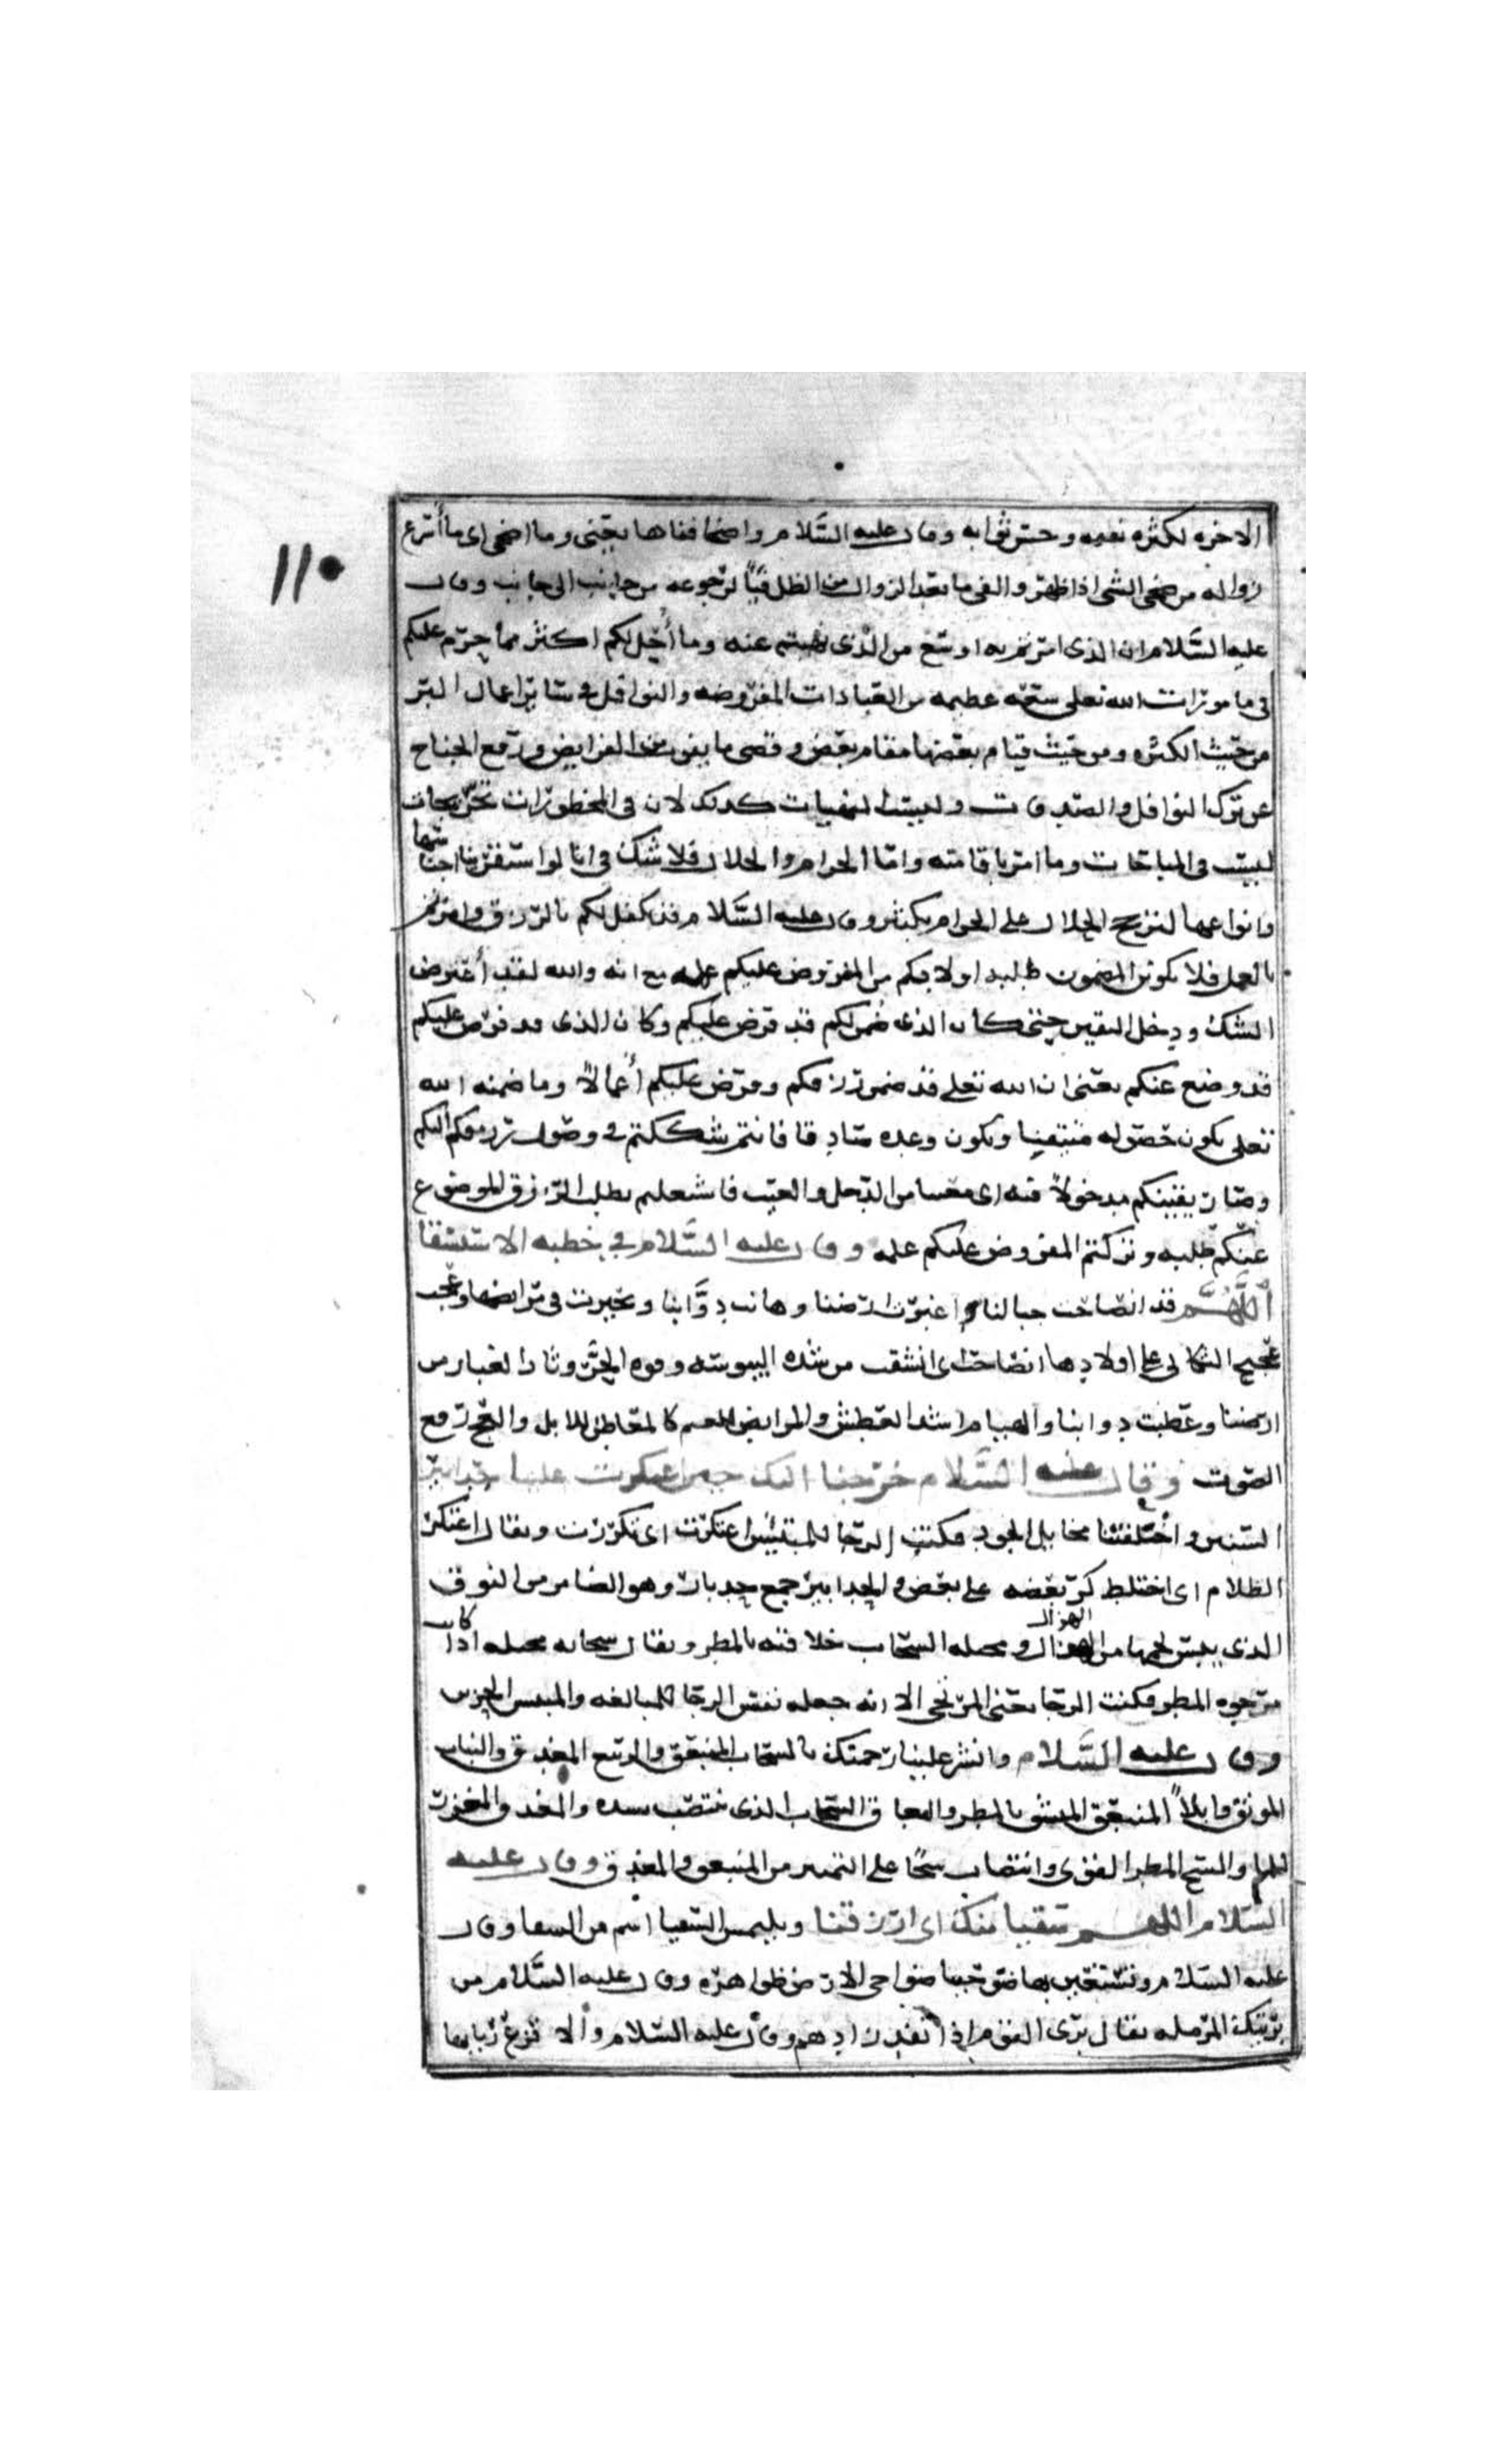 ١١٠
الاخره لكثره نعيمه وحسن ثوابه وقال عليه السَّلام واضحا فناها يعنى وما اضحى اى ما أسرع
زواله من ضحى الشى اذا ظهر والفى ما بعد الزوال من الظل فيئاً لرجوعه من جانب الى جانب وقال
عليه السَّلام ان الذى امرتم به اوسع من الذى نهيتم عنه وما أحل لكم اكثر مما حرّم عليكم
فى مامورات الله تعلى سعه عظيمه من العبادات المفروضه والنوافل فى سائر اعمال البر
من حيث الكثره ومن حيث قيام بعضها مقام بعض وقضى ما يفوت من الفرايض ورفع الجناح
عن ترك النوافل والصدقات وليست المنهيات كذلك لان فى المحظورات تحريجات
ليست فى المباحات وما امر باقامته واما الحرام والحلال فلا شك فى انا لو استقرينا اجناسها
وانواعها لترجح الحلال على الحرام بكثير وقال عليه السَّلام قد تكفل لكم بالرزق وامرتم
بالعمل فلا يكونن المضمون طلبه اولا بكم من المفروض عليكم عمله مع انه والله لقد أعترض
الشك ودخل اليقين حتى كان الذى ضمن لكم قد فرض عليكم وكان الذى قد فرض عليكم
قد وضع عنكم يعنى ان الله تعلى قد ضمن رزقكم وفرض عليكم أعمالاً وما ضمنه الله
تعلى يكون حصوله متيقنا ويكون وعده صادقا فانتم شككتم فى وصول رزقكم اليكم
وصار يقينكم مدخولاً فيه اى معيبا من الدخل والعيب فاشتغلتم بطلب الرزق الموضوع
عنكم طلبه وتركتم المفروض عليكم عمله وقال عليه السَّلام فى خطبه الاستسقا
أللَّهُمَّ قد انصاحت جبالنا واغبرت ارضنا وهامت دوَّابنا وتحيرت فى مرابضها وعجت
عجيج الثكالى على اولادها انصاحت اى انشقت من شده اليبوسه وقوه الحرّ وثار الغبار من
ارضنا وعطبت دوابنا والهيام اشد العطش والمرابض للغنم كالمعاطن للابل والعج رفع
الصوت وقال عليه السَّلام خرجنا اليك حين اعتكرت علينا حدابير
السنين واخلفتنا مخايل الجود فكنت الرجا للمبتئس اعتكرت اى تكررت ويقال اعتكر
الظلام اى اختلط كر بعضه على بعض والحدابير جمع حدبار وهو الضامر من النوق
الذى يبس لحمها من الهزال ومخيله السحاب خلاقته بالمطر ويقال سحابه مخيله اذا كانت
مرجوه المطر فكنت الرجا يعنى المرتجى الا انه جعله نفس الرجا للمبالغه والمبتئس الحزين
وقال عليه السَّلام وانشر علينا رحمتك بالسحاب المنبعق والربيع المغدق والنبات
المونق وابلاً المنبعق المنشق بالمطر والبعاق السحاب الذى يتصبب بشده والمغدق المغزر
للماء والسح المطر القوى وانتصاب سحًا على التمييز من المنبعق والمغدق وقال عليه
السَّلام اللهم سقيا منك اى ارزقنا السقيا اسم من السقا وقال
عليه السَّلام وتستعين بها ضواحينا ضواحى الارض ظواهره وقال عليه السَّلام من
بريتك المرمله يقال يرى القوم اذا نفد زادهم وقال عليه السَّلام وألا قزع ربابها